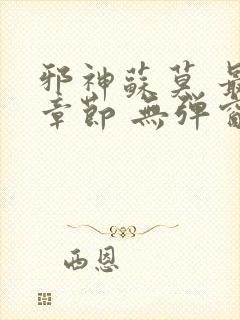 邪神蘇莫 最
章節 無彈窗
西恩